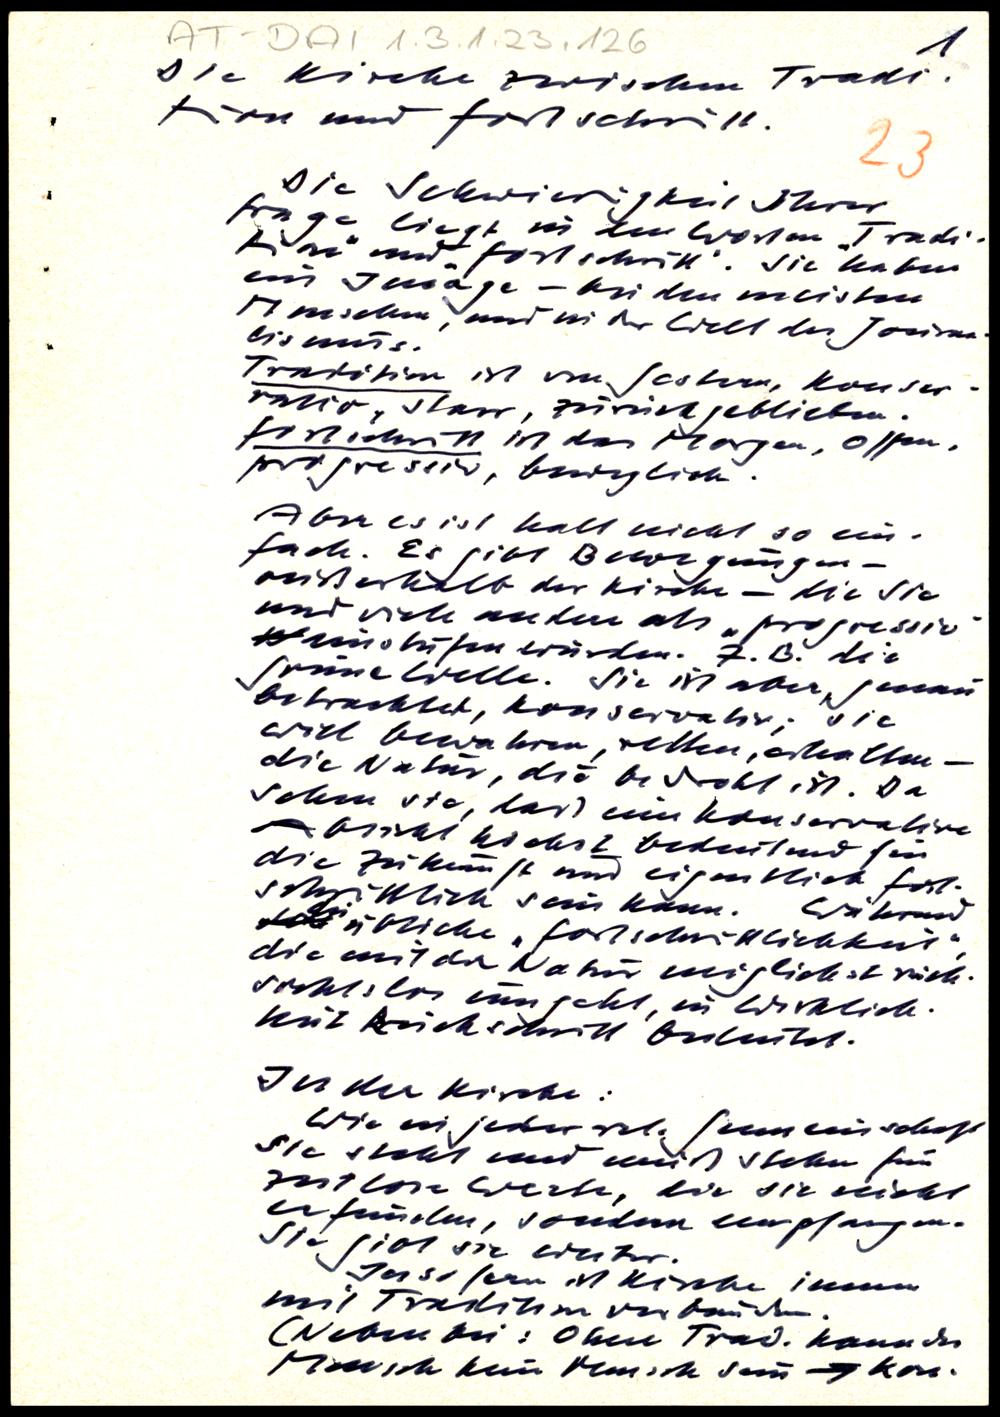 AT-DAI 1.3.1.23.126
1
Die Kirche zwischen Tradi-
tion und Fortschritt.
23
Die Schwierigkeit Ihrer
Frage liegt in den Worten „Tradi-
tion" und „Fortschritt". Sie haben
ein Image – bei den meisten
Menschen, und in der Welt des Journa-
lismus.
Tradition ist von Gestern, konser-
vativ, starr, zurückgeblieben.
Fortschritt ist das Morgen, offen,
progressiv, beweglich.
Aber es ist halt nicht so ein-
fach. Es gibt Bewegungen –
außerhalb der Kirche – die Sie
und viele andere als „progressiv"
einstufen würden. Z.B. die
grüne Welle. Sie ist aber, genau
betrachtet, konservativ; sie
will bewahren, retten, erhalten –
die Natur, die bedroht ist. Da
sehen sie, daß eine konservative
höchst bedeutend für
die Zukunft und eigentlich fort-
schrittlich sein kann. Während
die übliche „Fortschrittlichkeit",
die mit der Natur möglichst rück-
sichtslos umgeht, in Wirklich-
keit Rückschritt bedeutet.
In der Kirche:
Wie in jeder rel. Gemeinschaft
Sie steht und muß stehen für
zeitlose Werte, die sie nicht
erfunden, sondern empfangen.
Sie gibt sie weiter.
Insofern ist Kirche immer
mit Tradition verbunden.
(Nebenbei: Ohne Trad. kann der
Mensch kein Mensch sein → Kon-